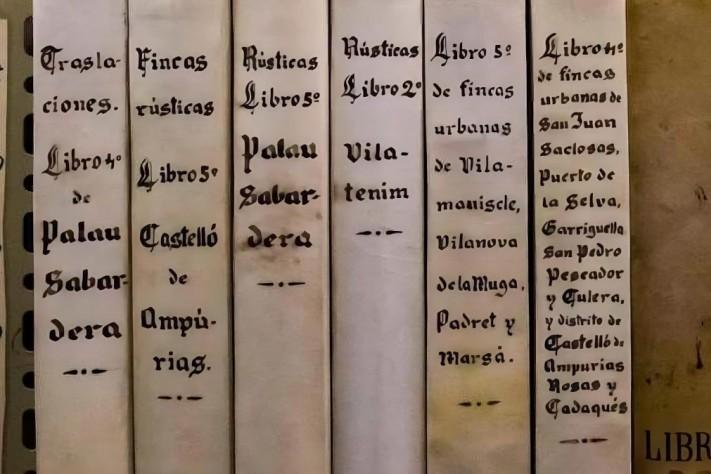 Trasla-
ciones.
Libro 4º
de
Palau
Sabar-
dera
Fincas
rústicas
Libro 5º
Castelló
de
Ampú-
rias.
Rústicas
Libro 5º
Palau
Sabar-
dera
Rústicas
Libro 2º
Vila-
tenim
Libro 5º
de fincas
urbanas
de Vila-
maniscle,
Vilanova
de la Muga,
Padret y
Marsá.
Libro 4º
de fincas
urbanas de
San Juan
Saclosas,
Puerto de
la Selva,
Garriguella
San Pedro
Pescador
y Culera,
y distrito de
Castelló de
Ampurias
Rosas y
Cadaqués
LIBR